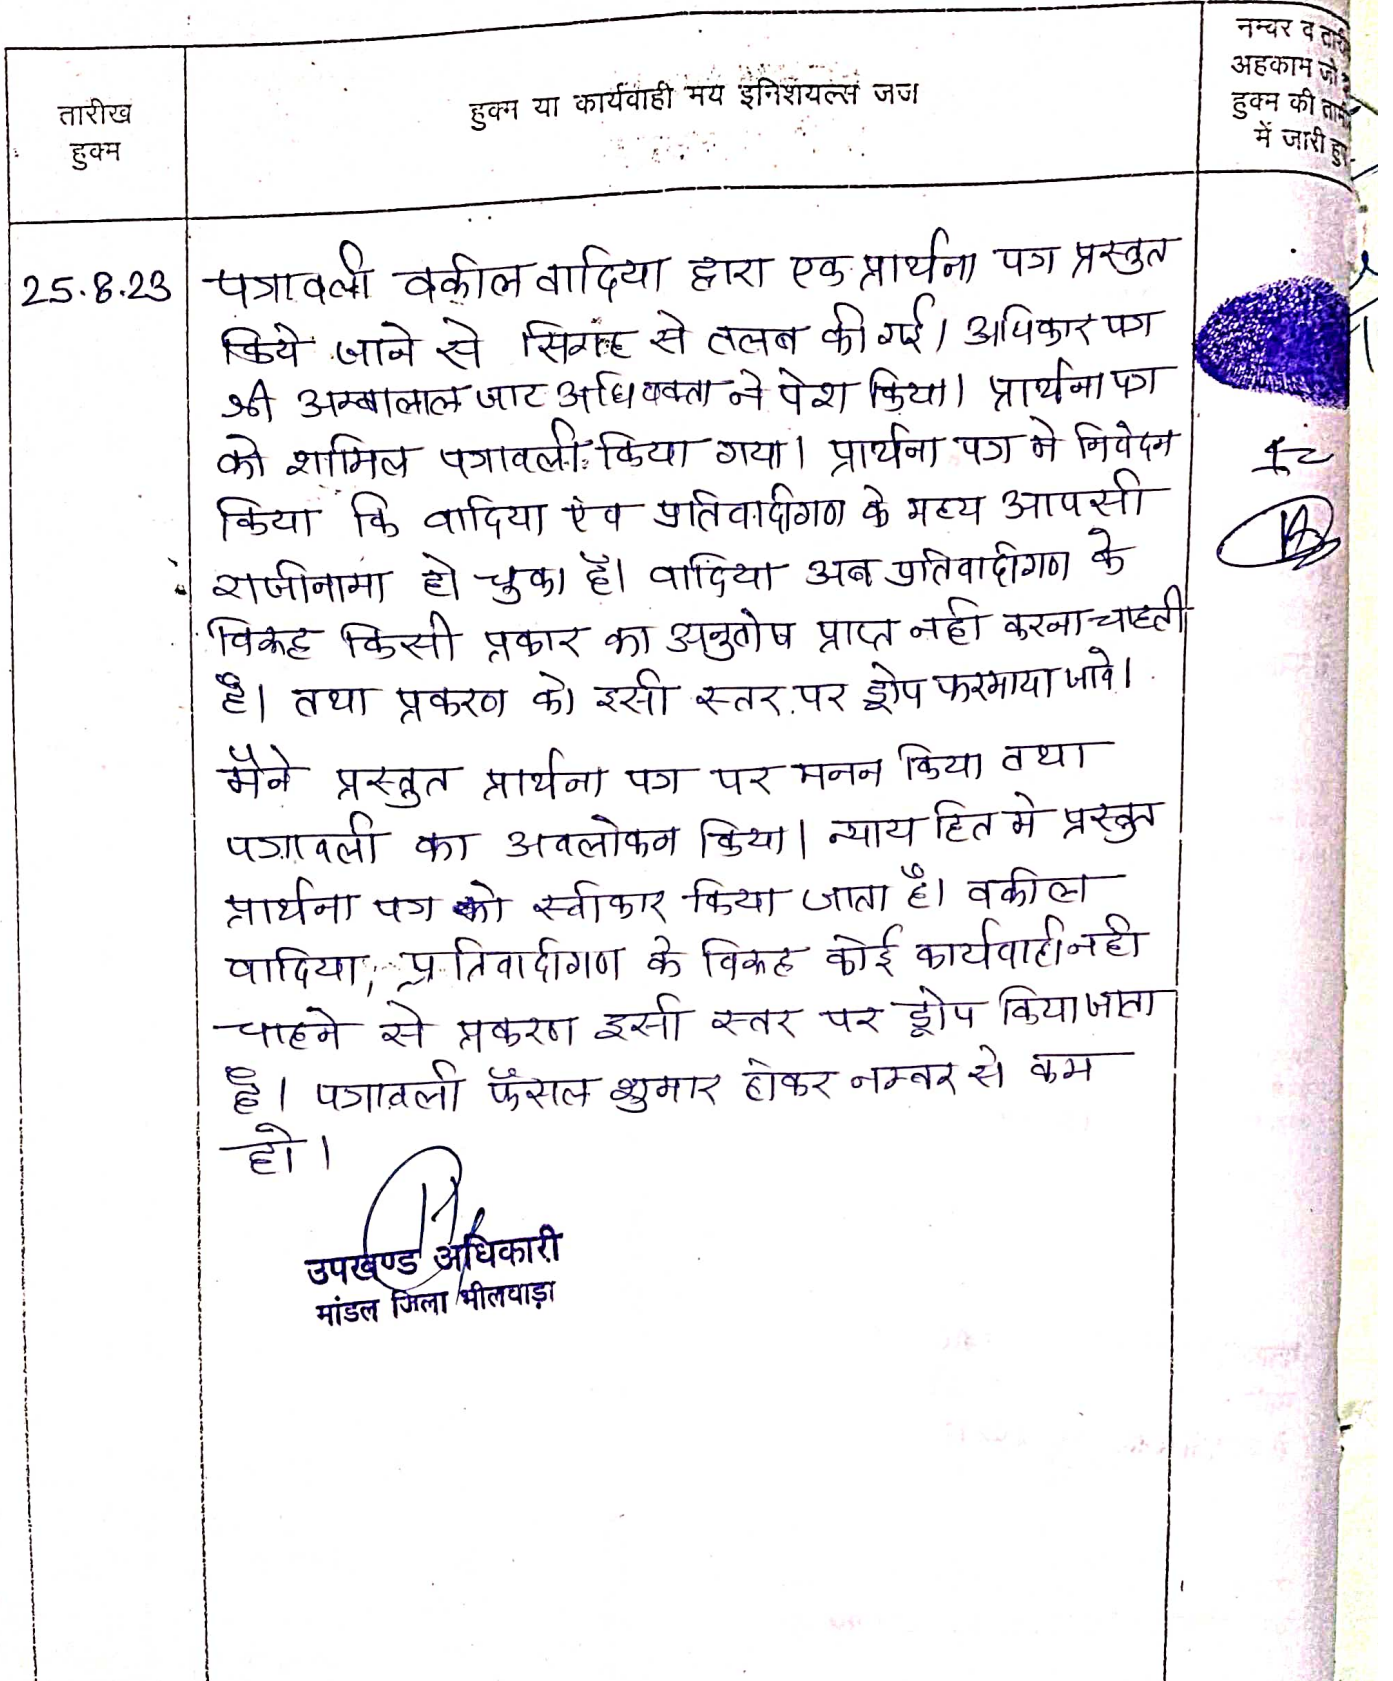 तारीख
हुक्म
हुक्म या कार्यवाही मय इनिशियल्स जज
नम्बर व
अहकाम जो
हुक्म की
में जारी
25.8.23
पत्रावली वकील वादिया द्वारा एक प्रार्थना पत्र प्रस्तुत
किये जाने से सिगह से तलब की गई। अधिकार पत्र
श्री अम्बालाल जाट अधिवक्ता ने पेश किया। प्रार्थना पत्र
को शामिल पत्रावली किया गया। प्रार्थना पत्र मे निवेदन
किया कि वादिया एंव प्रतिवादीगण के मध्य आपसी
राजीनामा हो चुका है। वादिया अब प्रतिवादीगण के
विरूद्ध किसी प्रकार का अनुतोष प्राप्त नही करना चाहती
है। तथा प्रकरण को इसी स्तर पर ड्रोप फरमाया जावे।
मैने प्रस्तुत प्रार्थना पत्र पर मनन किया तथा
पत्रावली का अवलोकन किया। न्याय हित मे प्रस्तुत
प्रार्थना पत्र को स्वीकार किया जाता है। वकील
वादिया, प्रतिवादीगण के विरूद्ध कोई कार्यवाही नही
चाहने से प्रकरण इसी स्तर पर ड्रोप किया जाता
है। पत्रावली फैसल शुमार होकर नम्बर से कम
हो।
उपखण्ड अधिकारी
मांडल जिला भीलवाड़ा